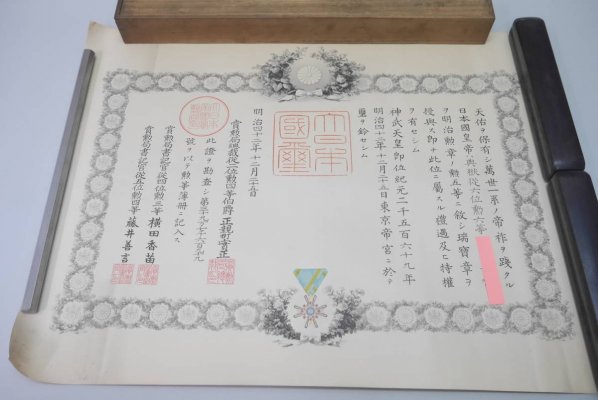 天佑ヲ保有シ萬世一系ノ帝祚ヲ踐タル
日本國皇帝ハ從六位勳六等
ヲ明治勳章ノ勳五等ニ敘シ瑞寶章ヲ
授與ス即チ此位ニ屬スル禮遇及ヒ特權
ヲ有セシム
神武天皇即位紀元二千五百六十九年
明治四十二年十二月二十五日東京帝宮ニ於テ
璽ヲ鈐セシム
大日本國璽
明治四十二年十二月二十五日
賞勳局總裁從二位勳四等伯爵正親町實正
此證ヲ勘査シ第三九六〇九
號ヲ以テ勳等簿冊ニ記入ス
賞勳局書記官從四位勳三等橫田香苗
賞勳局書記官從五位勳四等藤井善言